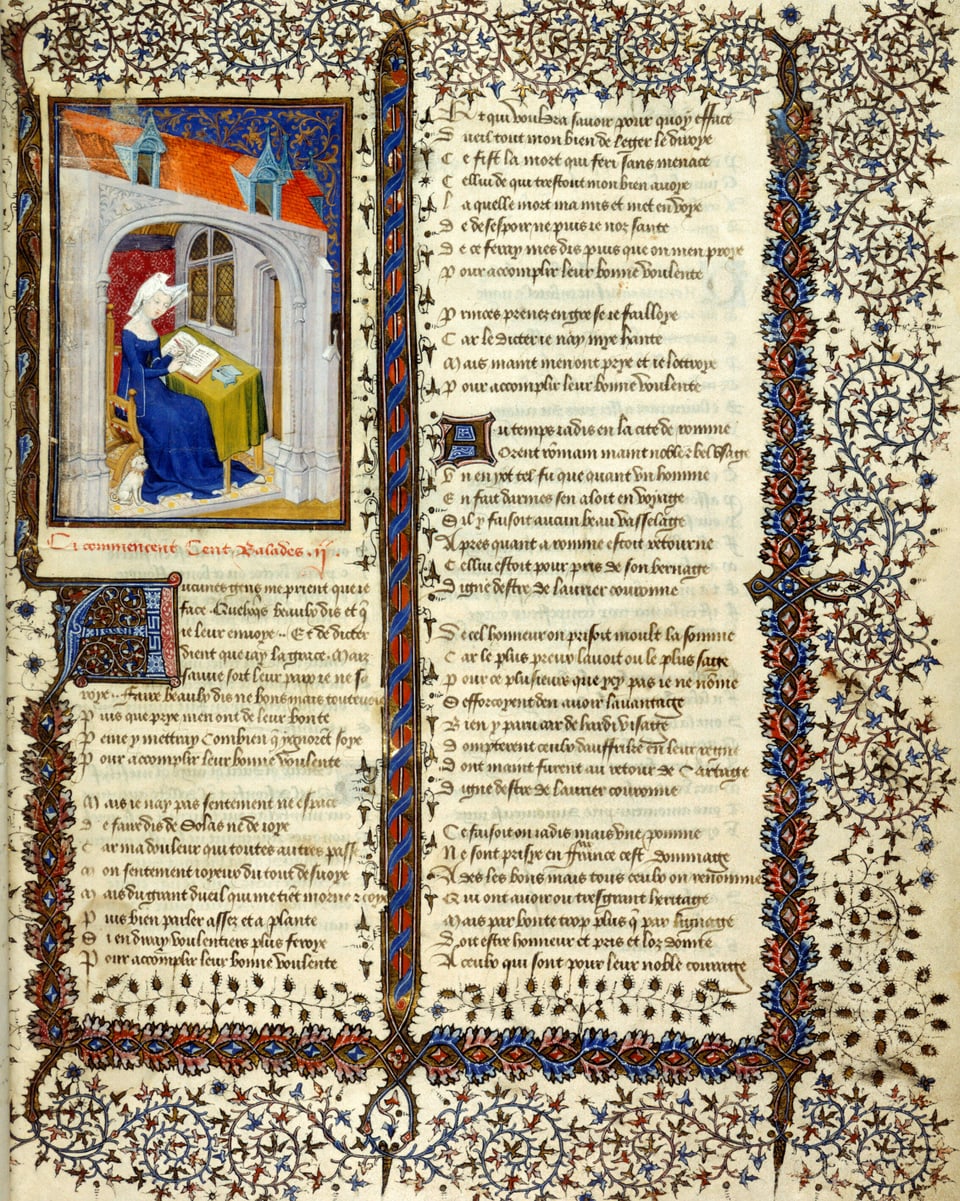 Ci commencent Cent Balades. ij
Aucunes gens me prient que ie
face. Quelques beaulx dis et q̃
ie leur envoye.. Et de dicter
dient que iay la grace. Mais
sauve soit leur paix ie ne sc
roye.. Faire beaulx dis ne bons mais toutevoie
Puis que prye men ont de leur bonte
Peine y mettray combien q̃ ygnorẽt soye
Pour accomplir leur bonne voulente
Mais ie nay pas sentement ne espace
De faire dis de Solas ne de ioye
Car ma douleur qui toutes autres passe
Mon sentement ioyeux du tout desvoye
Mais du grant dueil qui me tiẽt morne 2 coye
Puis bien parler assez et a plante
Si en diray voulentiers plus feroye
Pour accomplir leur bonne voulente
Et qui vouldra savoir pour quoy efface
Dueil tout mon bien de legier le diroye
Ce fist la mort qui feri sans menace
Cellui de qui trestout mon bien avoye
Laquelle mort ma mis et met en voye
De desespoir ne puis ie noz sante
De ce feray mes dis puis que on men proye
Pour accomplir leur bonne voulente
Princes prenez en gre se ie failloye
Car le dictier ie nay mye hante
Mais maint men ont prye et ie lottroye
Pour accomplir leur bonne voulente
Au temps iadis en la cite de romme
Orent rõmain maint noble bel usage
Un en yot tel fu que quant un homme
En fait darmes sen aloit en voyage
Sil y faisoit aucun beau vasselage
Apres quant a romme estoit retourne
Cellui estoit pour pris de son bernage
Digne destre de laurier couronne
De cel honneur on prisoit moult la somme
Car le plus preux lavoit ou le plus sage
Pour ce plusieurs que pcy pas ie ne nõme
Sefforcoyent den avoir lavantage
Bien y paru car de hardi visage
Dompterent ceulx dauffrike en leur regne
Dont maint furent au retour de Cartage
Digne destre de laurier couronne
Ce faisoit on iadis mais une pomme
Ne sont prisye en france cest dommage
Ades les bons mais tous ceulx on renomme
Qui ont avoir ou tresgrant heritage
Mais par bonte trop plus q̃ par lignage
Doit estre honneur et pris et loz dõnte
A ceulx qui sont pour leur noble courage